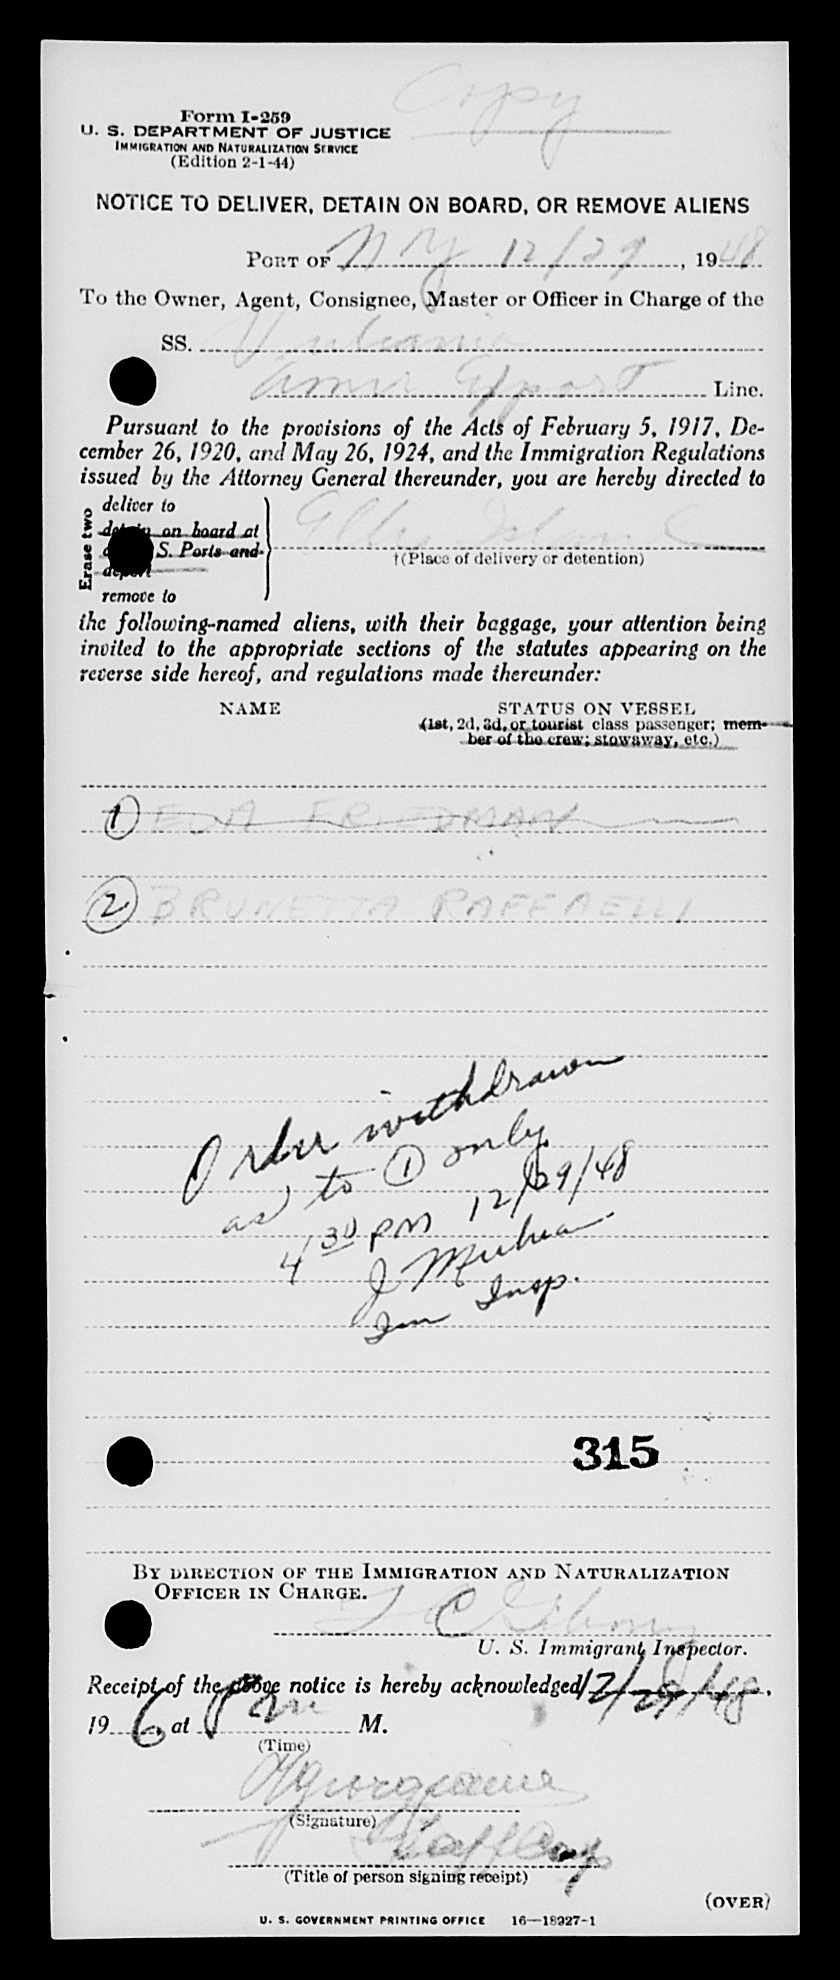 Copy
Form I-259
U. S. DEPARTMENT OF JUSTICE
IMMIGRATION AND NATURALIZATION SERVICE
(Edition 2-1-44)
NOTICE TO DELIVER, DETAIN ON BOARD, OR REMOVE ALIENS
PORT OF N Y 12/29, 1948
To the Owner, Agent, Consignee, Master or Officer in Charge of the
SS. Vulcania
Amer Export Line.
Pursuant to the provisions of the Acts of February 5, 1917, De-
cember 26, 1920, and May 26, 1924, and the Immigration Regulations
issued by the Attorney General thereunder, you are hereby directed to
Erase two
deliver to
detain on board at
S. Ports and
deport
remove to
Ellis Island
†(Place of delivery or detention)
the following-named aliens, with their baggage, your attention being
invited to the appropriate sections of the statutes appearing on the
reverse side hereof, and regulations made thereunder:
NAME STATUS ON VESSEL
(1st, 2d, 3d, or tourist class passenger; mem-
ber of the crew; stowaway, etc.)
1 EVA FRIEDMAN
2 BRUNETTA RAFFAELLI
Order withdrawn
as to 1 only
4 30 PM 12/29/48
J
Im Insp.
315
BY DIRECTION OF THE IMMIGRATION AND NATURALIZATION
OFFICER IN CHARGE.
U. S. Immigrant Inspector.
Receipt of the above notice is hereby acknowledged 12/29/48,
19 6 at Pm M.
(Time)
(Signature)
(Title of person signing receipt)
(OVER)
U. S. GOVERNMENT PRINTING OFFICE 16—18927-1